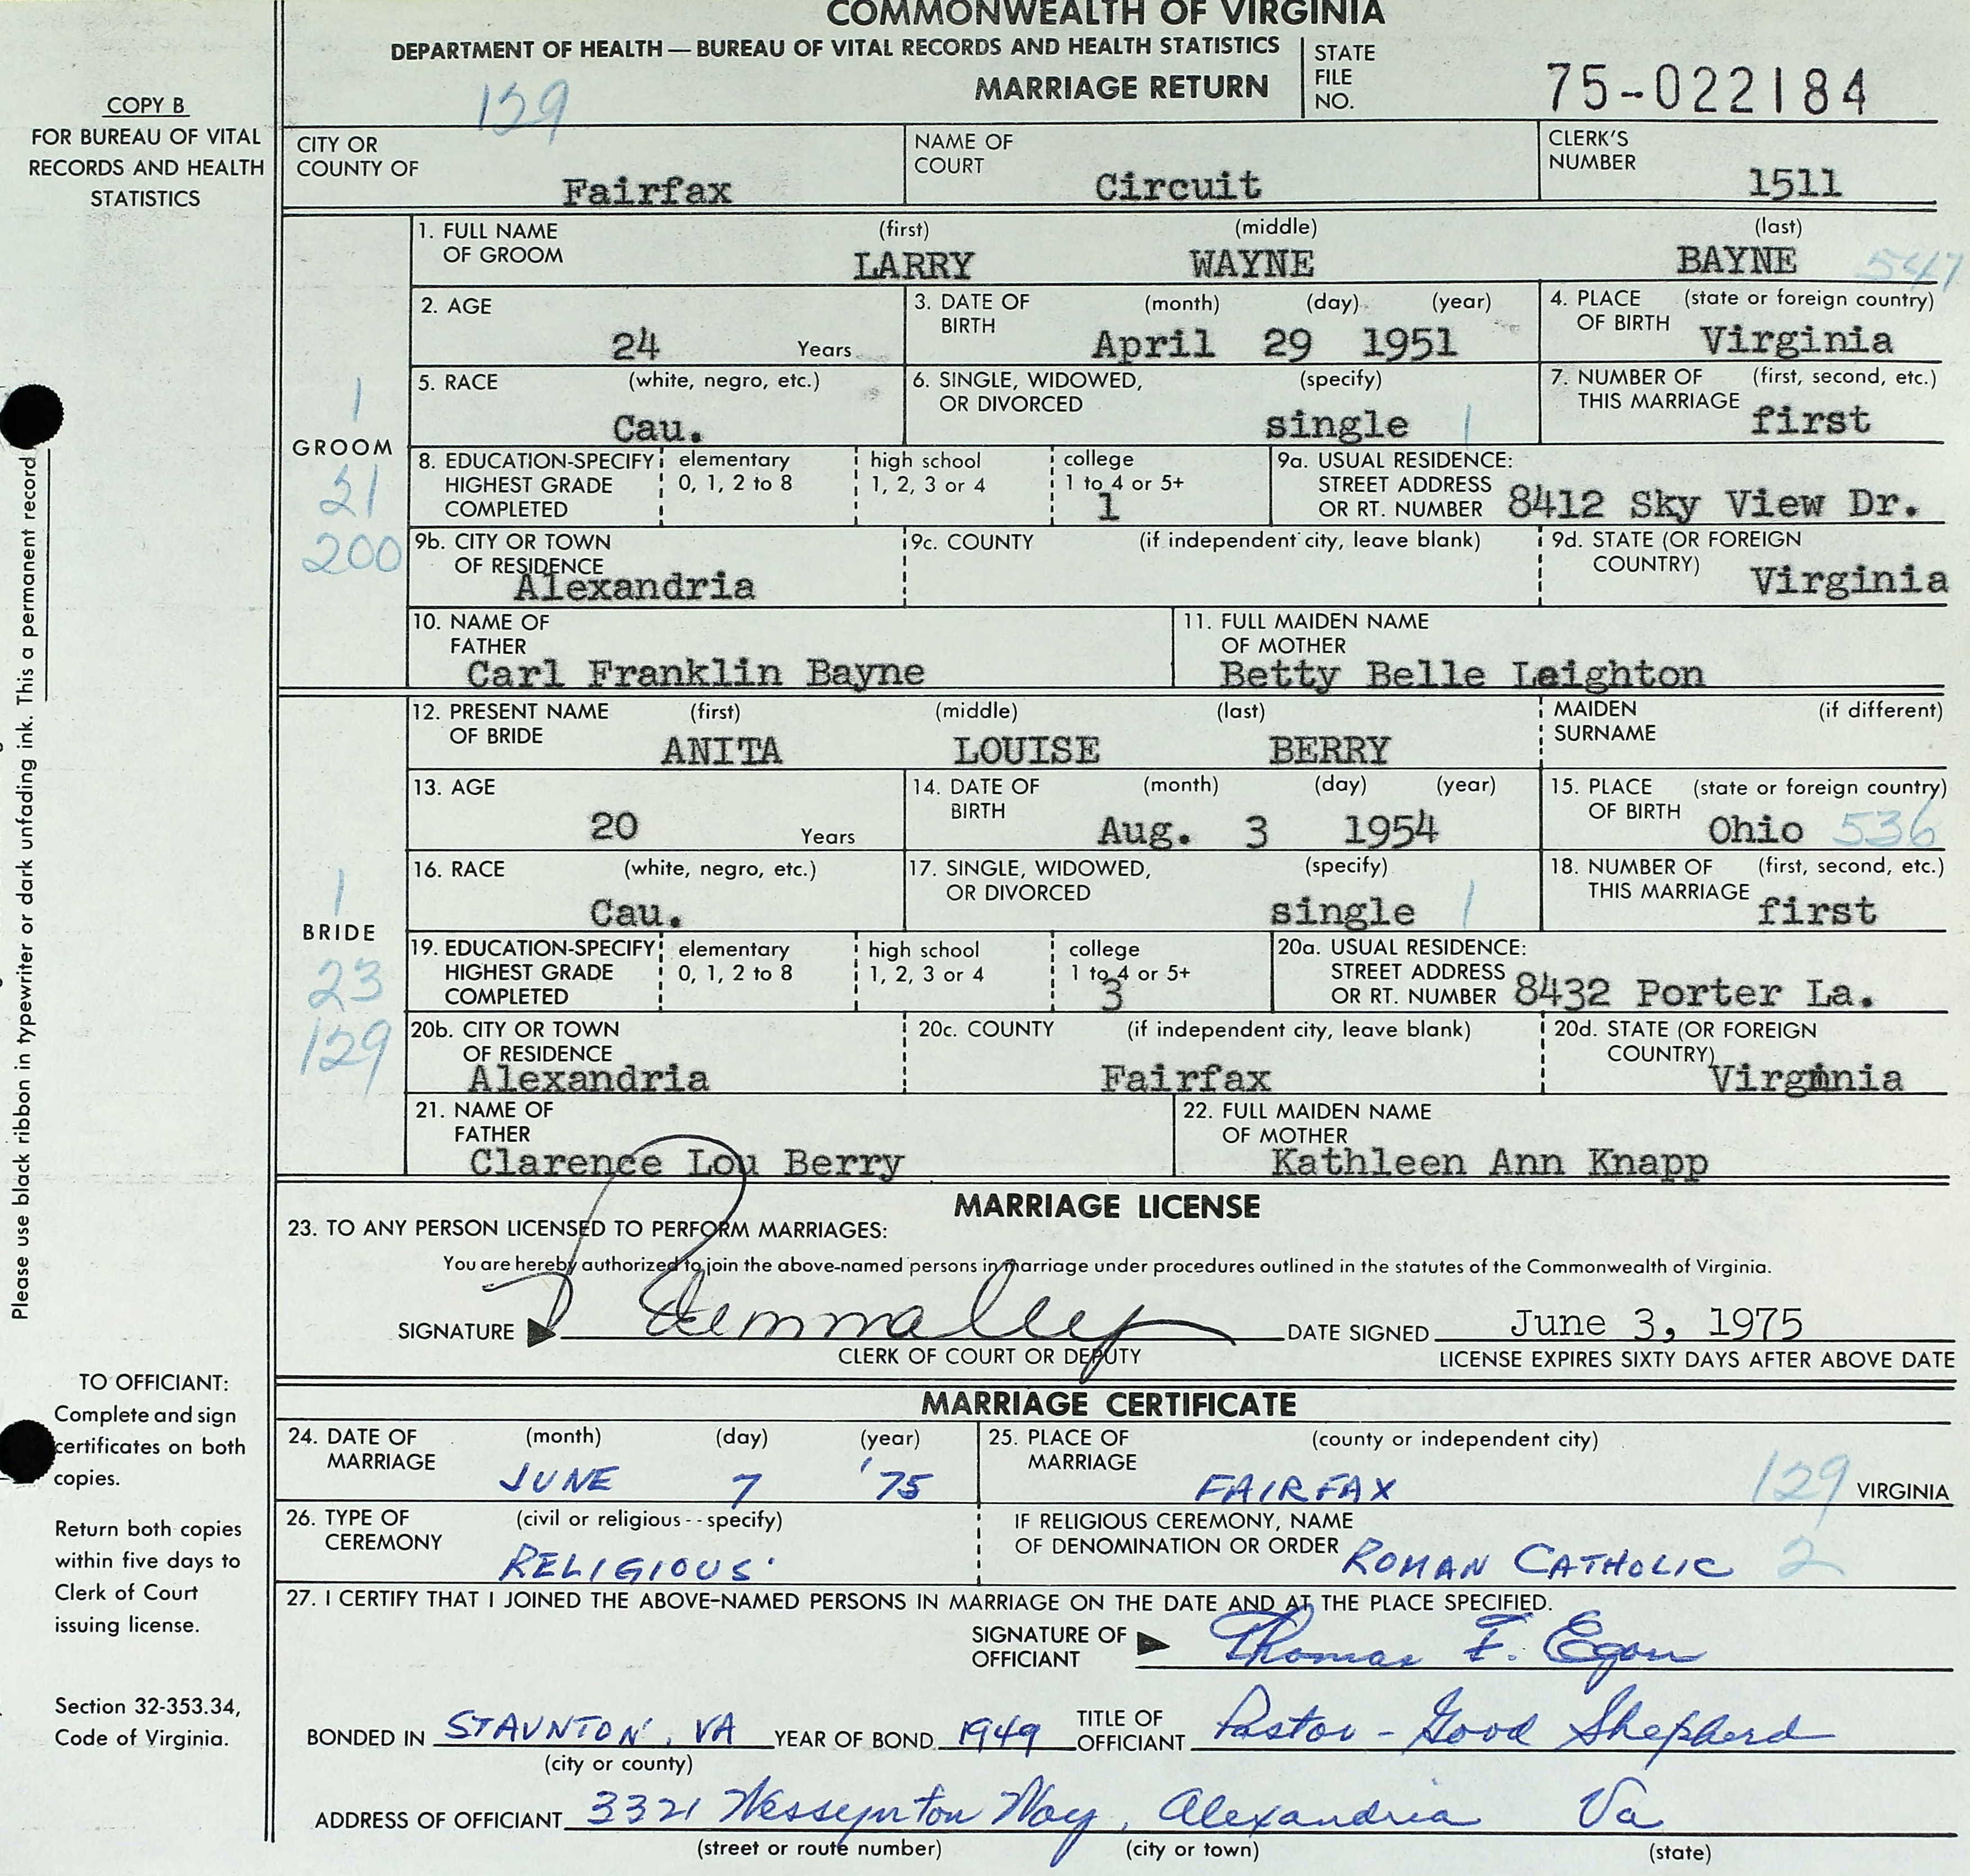 COMMONWEALTH OF VIRGINIA
DEPARTMENT OF HEALTH — BUREAU OF VITAL RECORDS AND HEALTH STATISTICS
MARRIAGE RETURN
STATE FILE NO. 75-022184
139
COPY B
FOR BUREAU OF VITAL
RECORDS AND HEALTH
STATISTICS
CITY OR COUNTY OF Fairfax
NAME OF COURT Circuit
CLERK'S NUMBER 1511
GROOM
1
21
200
1. FULL NAME OF GROOM (first) LARRY (middle) WAYNE (last) BAYNE 547
2. AGE 24 Years
3. DATE OF BIRTH (month) (day) (year) April 29 1951
4. PLACE OF BIRTH (state or foreign country) Virginia
5. RACE (white, negro, etc.) Cau.
6. SINGLE, WIDOWED, OR DIVORCED (specify) single 1
7. NUMBER OF THIS MARRIAGE (first, second, etc.) first
8. EDUCATION-SPECIFY HIGHEST GRADE COMPLETED elementary 0, 1, 2 to 8 high school 1, 2, 3 or 4 college 1 to 4 or 5+ 1
9a. USUAL RESIDENCE: STREET ADDRESS OR RT. NUMBER 8412 Sky View Dr.
9b. CITY OR TOWN OF RESIDENCE Alexandria
9c. COUNTY (if independent city, leave blank)
9d. STATE (OR FOREIGN COUNTRY) Virginia
10. NAME OF FATHER Carl Franklin Bayne
11. FULL MAIDEN NAME OF MOTHER Betty Belle Leighton
BRIDE
1
23
129
12. PRESENT NAME OF BRIDE (first) ANITA (middle) LOUISE (last) BERRY
MAIDEN SURNAME (if different)
13. AGE 20 Years
14. DATE OF BIRTH (month) (day) (year) Aug. 3 1954
15. PLACE OF BIRTH (state or foreign country) Ohio 536
16. RACE (white, negro, etc.) Cau.
17. SINGLE, WIDOWED, OR DIVORCED (specify) single 1
18. NUMBER OF THIS MARRIAGE (first, second, etc.) first
19. EDUCATION-SPECIFY HIGHEST GRADE COMPLETED elementary 0, 1, 2 to 8 high school 1, 2, 3 or 4 college 1 to 4 or 5+ 3
20a. USUAL RESIDENCE: STREET ADDRESS OR RT. NUMBER 8432 Porter La.
20b. CITY OR TOWN OF RESIDENCE Alexandria
20c. COUNTY (if independent city, leave blank) Fairfax
20d. STATE (OR FOREIGN COUNTRY) Virginia
21. NAME OF FATHER Clarence Lou Berry
22. FULL MAIDEN NAME OF MOTHER Kathleen Ann Knapp
MARRIAGE LICENSE
23. TO ANY PERSON LICENSED TO PERFORM MARRIAGES:
You are hereby authorized to join the above-named persons in marriage under procedures outlined in the statutes of the Commonwealth of Virginia.
SIGNATURE
CLERK OF COURT OR DEPUTY
DATE SIGNED June 3, 1975
LICENSE EXPIRES SIXTY DAYS AFTER ABOVE DATE
MARRIAGE CERTIFICATE
24. DATE OF MARRIAGE (month) (day) (year) JUNE 7 '75
25. PLACE OF MARRIAGE (county or independent city) FAIRFAX 129 VIRGINIA
26. TYPE OF CEREMONY (civil or religious - - specify) RELIGIOUS
IF RELIGIOUS CEREMONY, NAME OF DENOMINATION OR ORDER ROMAN CATHOLIC 2
27. I CERTIFY THAT I JOINED THE ABOVE-NAMED PERSONS IN MARRIAGE ON THE DATE AND AT THE PLACE SPECIFIED.
SIGNATURE OF OFFICIANT Thomas F. Egan
BONDED IN STAUNTON, VA (city or county) YEAR OF BOND 1949
TITLE OF OFFICIANT Pastor - Good Shepherd
ADDRESS OF OFFICIANT 3321 Wessynton Way, Alexandria Va
(street or route number) (city or town) (state)
Please use black ribbon in typewriter or dark unfading ink. This a permanent record
TO OFFICIANT:
Complete and sign
certificates on both
copies.
Return both copies
within five days to
Clerk of Court
issuing license.
Section 32-353.34,
Code of Virginia.